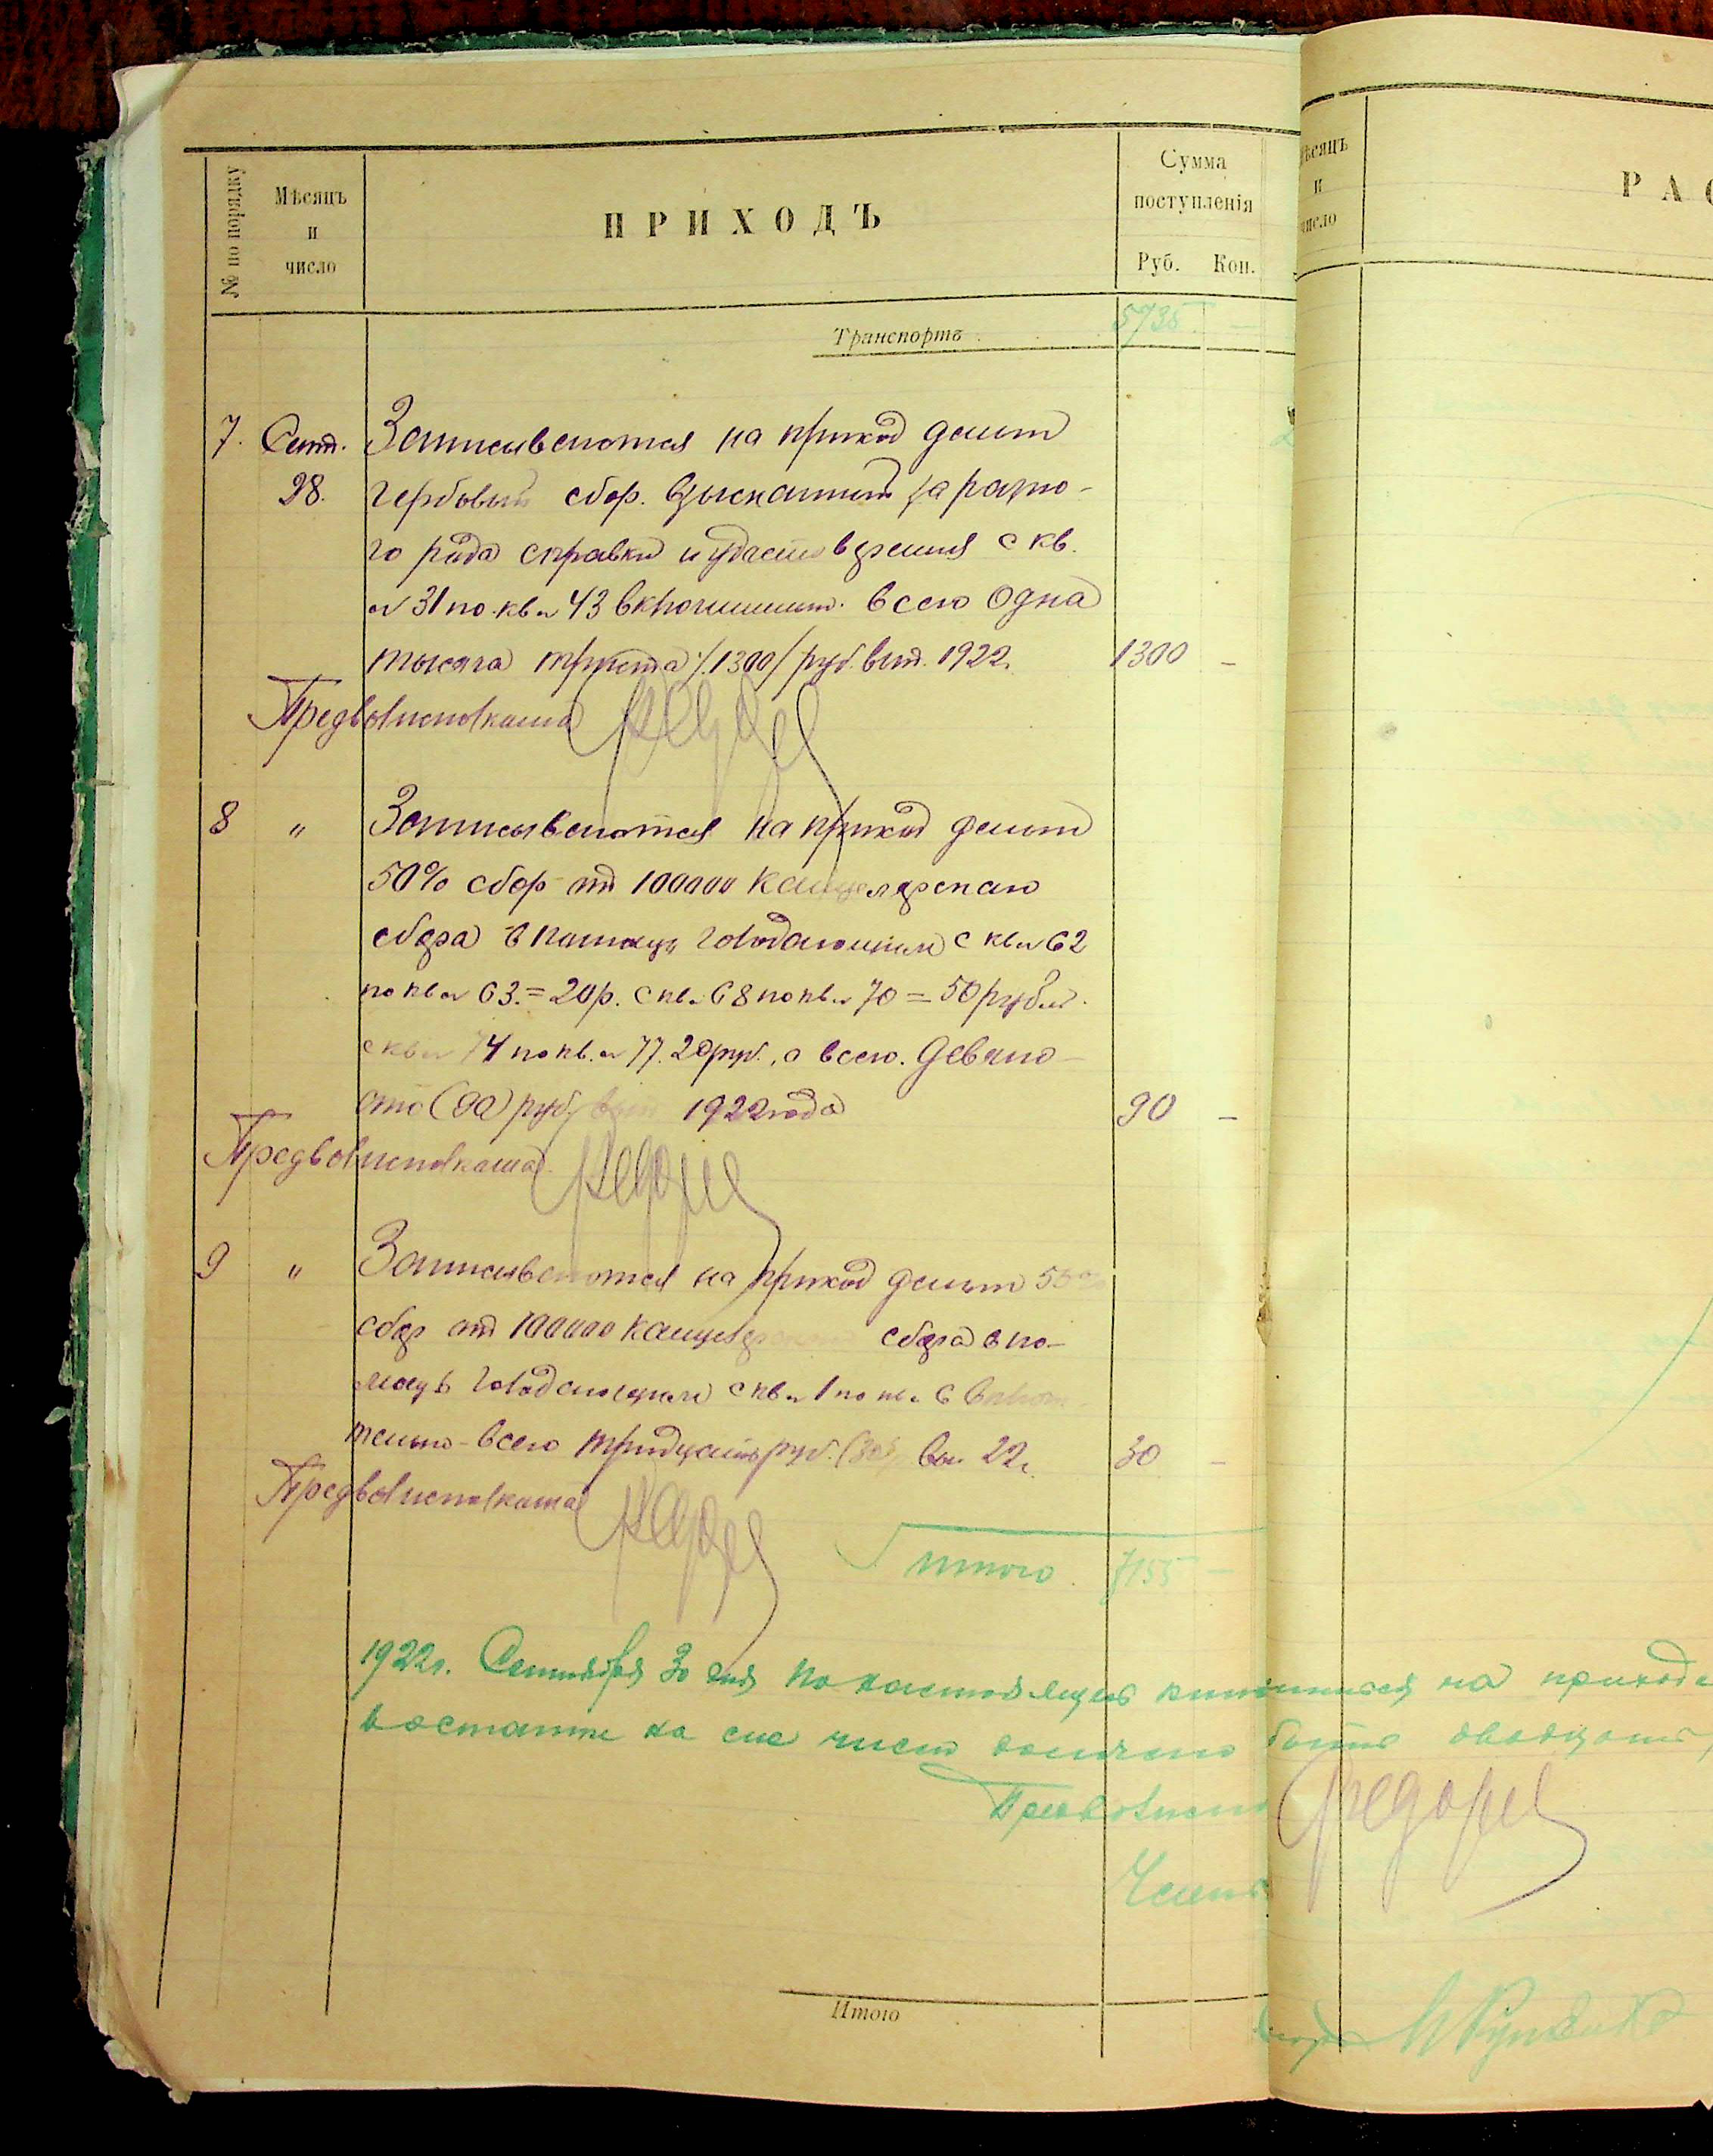 № по порядку
Мѣсяцъ
и
число
ПРИХОДЪ
Сумма
поступленія
Руб. Коп.
Транспортъ 5735 —
7. Сент. Записываются на приход деньги
28. гербовый сбор. взысканный за разно-
го рода справки и удостоверения с кв.
№ 31 по кв № 43 включительн. всего Одна
тысяча триста /1300/ руб. вып. 1922 г. 1300 —
Предволисполкома
8 " Записываются на приход деньги
50% сбор от 100000 канцелярскаго
сбора в помощь голодающим с кв № 62
по кв № 63. = 20 р. с кв. № 68 по кв. № 70 = 50 рублей.
с кв № 74 по кв. № 77. 20 руб., а всего. Девяно-
сто (90) руб. вып 1922 года 90 —
Предволисполкома
9 " Записываются на приход деньги 50%
сбор от 100000 канцелярск сбора в по-
мощь голодающим с кв № 1 по кв № 6 включи-
тельно - всего тридцать руб. (30) вы. 22 г. 30 —
Предволисполкома
Итого 7155 —
1922 г. Сентября 30 дня по настоящее на приходе
в остатке на сие число должно быть двадцать,
Предволиспо Федоре
Член
Итого
Мѣсяцъ
и
число
РАС